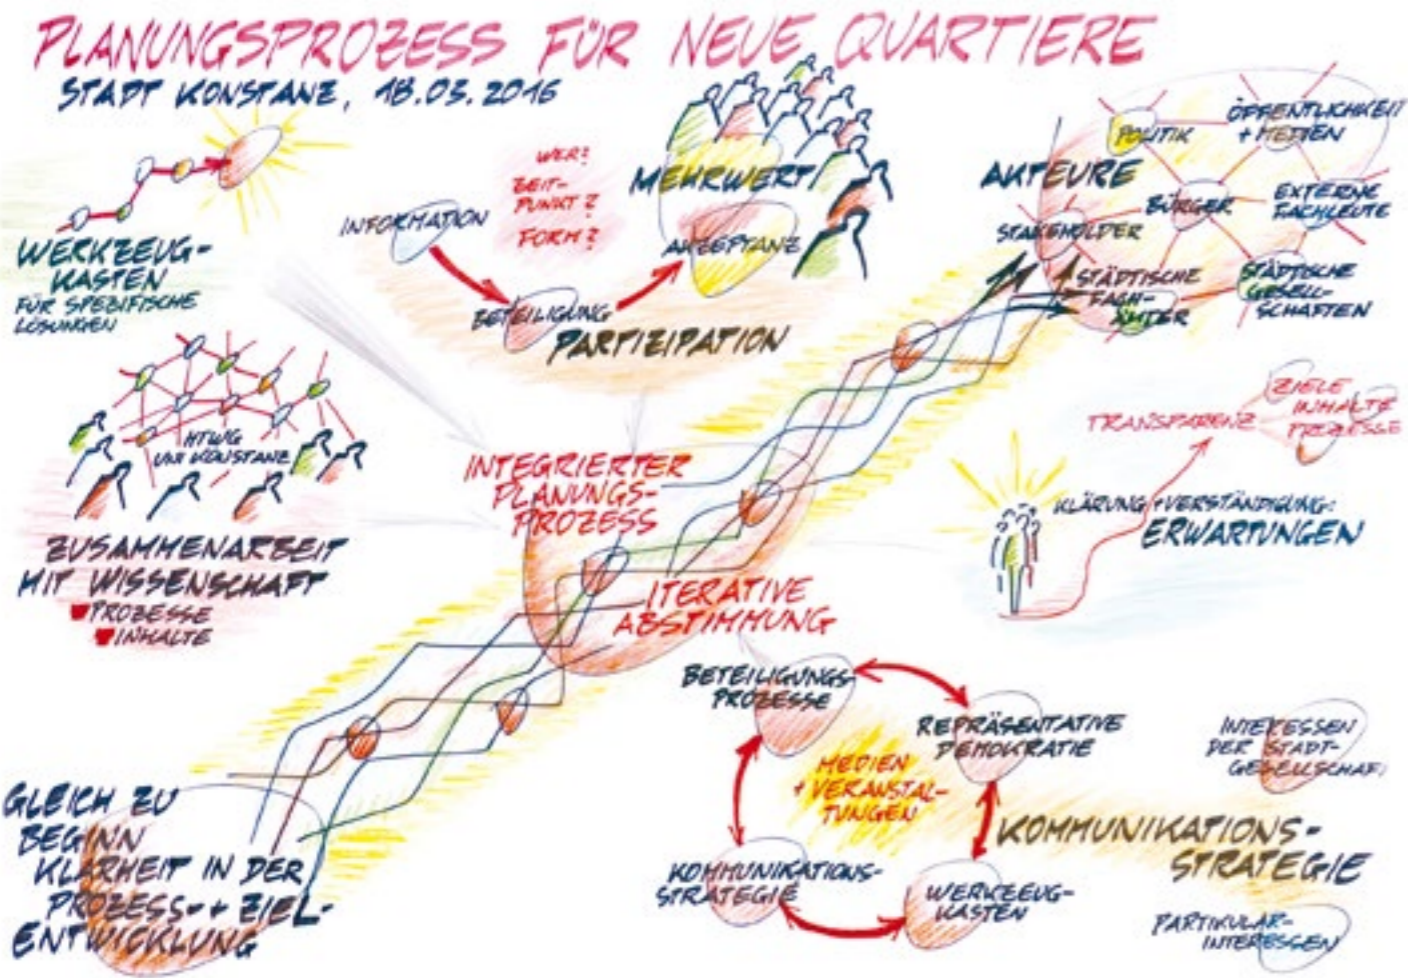 PLANUNGSPROZESS FÜR NEUE QUARTIERE
STADT KONSTANZ, 18.03.2016
WERKZEUG-
KASTEN
FÜR SPEZIFISCHE
LÖSUNGEN
INFORMATION
WER?
ZEIT-
PUNKT?
FORM?
MEHRWERT
AKZEPTANZ
BETEILIGUNG
PARTIZIPATION
AKTEURE
POLITIK
ÖFFENTLICHKEIT
+ MEDIEN
BÜRGER
EXTERNE
FACHLEUTE
STAKEHOLDER
STÄDTISCHE
FACH-
ÄMTER
STÄDTISCHE
GESELL-
SCHAFTEN
HTWG
UNI KONSTANZ
ZUSAMMENARBEIT
MIT WISSENSCHAFT
PROZESSE
INHALTE
INTEGRIERTER
PLANUNGS-
PROZESS
ITERATIVE
ABSTIMMUNG
TRANSPARENZ
ZIELE
INHALTE
PROZESSE
KLÄRUNG + VERSTÄNDIGUNG:
ERWARTUNGEN
BETEILIGUNGS-
PROZESSE
REPRÄSENTATIVE
DEMOKRATIE
MEDIEN
+ VERANSTAL-
TUNGEN
KOMMUNIKATIONS-
STRATEGIE
WERKZEUG-
KASTEN
INTERESSEN
DER STADT-
GESELLSCHAFT
KOMMUNIKATIONS-
STRATEGIE
PARTIKULAR-
INTERESSEN
GLEICH ZU
BEGINN
KLARHEIT IN DER
PROZESS- + ZIEL-
ENTWICKLUNG